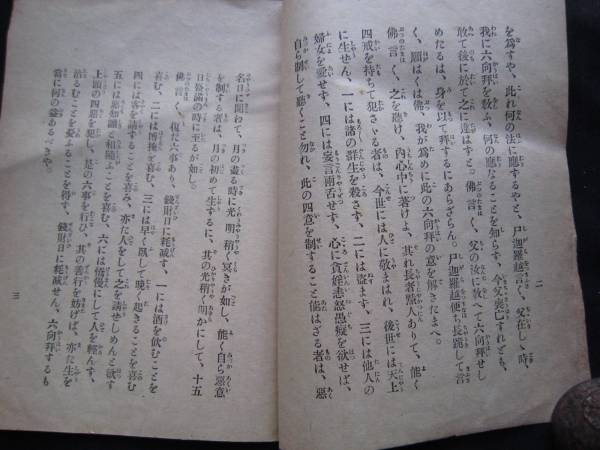 二
を爲すや、此れ何の法に應ずるやと、尸迦羅越言く、父在しゝ時、
我に六向拜を敎ふ、何の應なることを知らず、今父喪亡すれども、
敢て後に於て之に違はずと。佛言く、父の汝に敎へて六向拜せし
めたるは、身を以て拜するにあらざらん。尸迦羅越便ち長跪して言
く、願はくは佛、我が爲めに此の六向拜の意を解きたまへ。
佛言く、之を聽け、內心中に著けよ、其れ長者黠人ありて、能く
四戒を持ちて犯さゞる者は、今世には人に敬まはれ、後世には天上
に生ぜん、一には諸の群生を殺さず、二には盜まず、三には他人の
婦女を愛せず、四には妄言兩舌せず、心に貪婬恚怒愚癡を欲せば、
自ら制して聽くこと勿れ、此の四意を制すること能はざる者は、惡
名日に聞えて、月の盡る時に光明稍く冥きが如し、能く自ら惡意
を制する者は、月の初めて生ずるに、其の光稍く明かにして、十五
日盛滿の時に至るが如し。
佛言く、復た六事あり、錢財日に耗減す、一には酒を飮むことを
喜む、二には博掩を喜む、三には早く臥して晩く起きることを喜む
四には客を請することを喜み、亦た人をして之を請せしめんと欲す
五には惡知識と相隨ふことを喜む、六には憍慢にして人を輕んず、
上頭の四惡を犯し、是の六事を行ひ、其の善行を妨げば、亦た生を
治むることを憂ふることを得ず、錢財日に耗減せん、六向拜するも
當に何の益あるべきや。
三